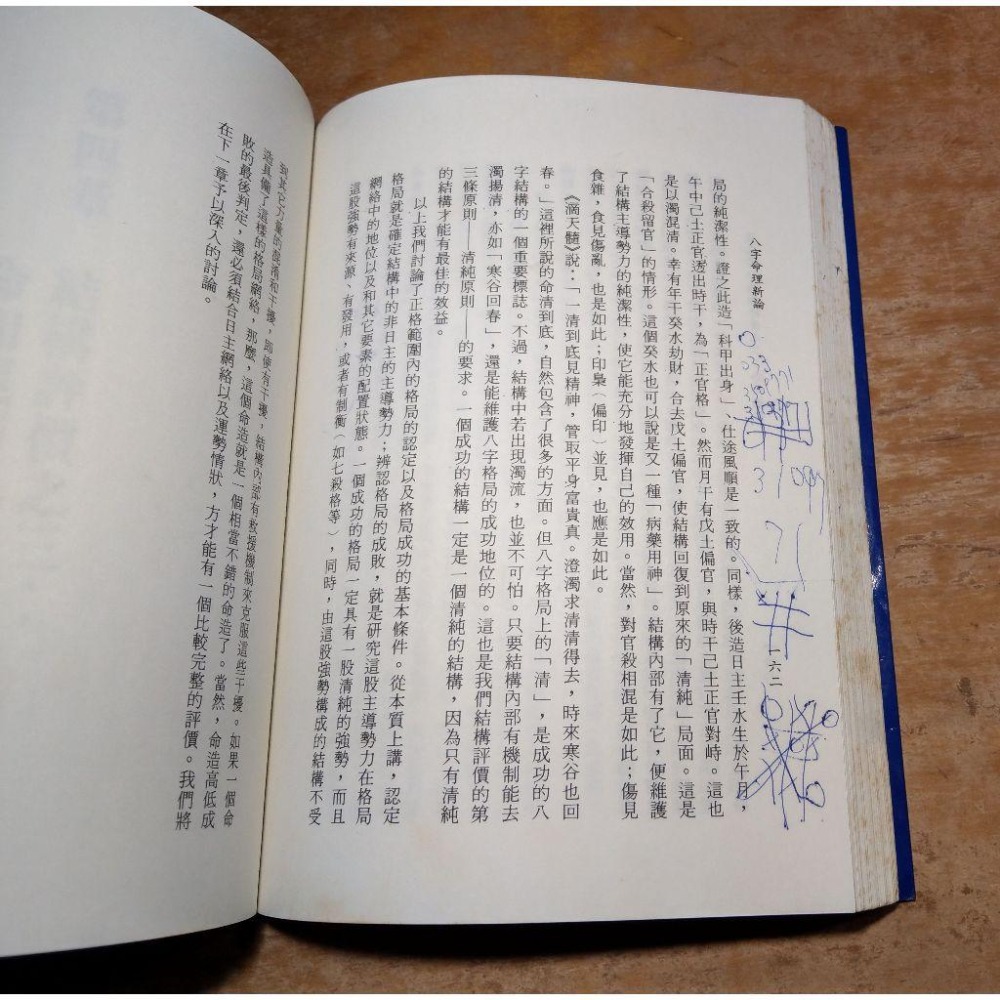 八字命理新論
一六二
局的純潔性。證之此造「科甲出身」，仕途風順是一致的。同樣，後造日主壬水生於午月，
午中己土正官透出時干，為「正官格」。然而月干有戊土偏官，與時干己土正官對峙。這也
是以濁混清。幸有年干癸水劫財，合去戊土偏官，使結構回復到原來的「清純」局面。這是
「合殺留官」的情形。這個癸水也可以說是又一種「病藥用神」。結構內部有了它，便維護
了結構主導勢力的純潔性，使它能充分地發揮自己的效用。當然，對官殺相混是如此；傷見
食雜，食見傷亂，也是如此；印梟（偏印）並見，也應是如此。
《滴天髓》說：「一清到底見精神，管取平身富貴真。澄濁求清清得去，時來寒谷也回
春。」這裡所說的命清到底，自然包含了很多的方面。但八字格局上的「清」，是成功的八
字結構的一個重要標誌。不過，結構中若出現濁流，也並不可怕。只要結構內部有機制能去
濁揚清，亦如「寒谷回春」，還是能維護八字格局的成功地位的。這也是我們結構評價的第
三條原則——清純原則——的要求。一個成功的結構一定是一個清純的結構，因為只有清純
的結構才能有最佳的效益。
以上我們討論了正格範圍內的格局的認定以及格局成功的基本條件。從本質上講，認定
格局就是確定結構中的非日主的主導勢力；辨認格局的成敗，就是研究這股主導勢力在格局
網絡中的地位以及和其它要素的配置狀態。一個成功的格局一定具有一股清純的強勢，而且
這股強勢有來源、有發用，或者有制衡（如七殺格等），同時，由這股強勢構成的結構不受
到其它力量的混淆和干擾，即使有干擾，結構內部有救援機制來克服這些干擾。如果一個命
造具備了這樣的格局網絡，那麼，這個命造就是一個相當不錯的命造了。當然，命造高低成
敗的最後判定，還必須結合日主網絡以及運勢情狀，方才能有一個比較完整的評價。我們將
在下一章予以深入的討論。